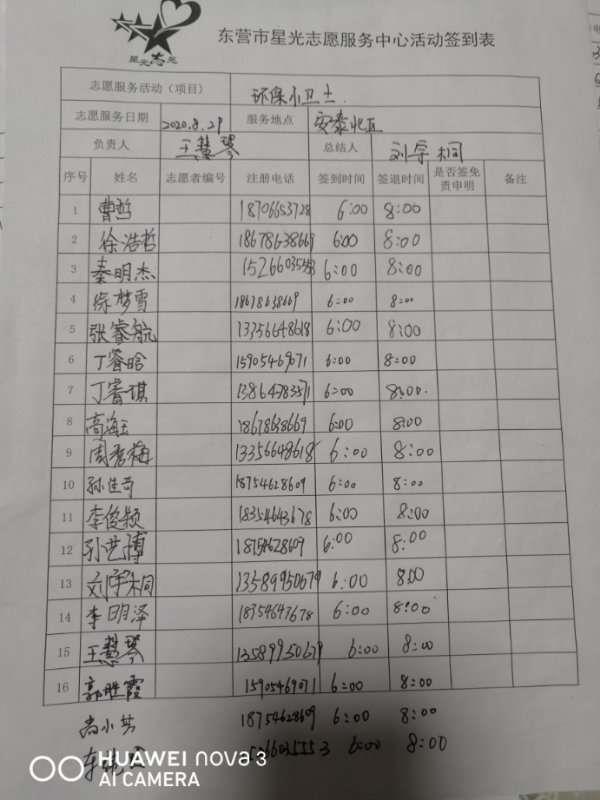 星光志愿
东营市星光志愿服务中心活动签到表
志愿服务活动（项目） 环保小卫士.
志愿服务日期 2020.8.29 服务地点 安泰北区
负责人 王慧琴 总结人 刘宇桐
序号 姓名 志愿者编号 注册电话 签到时间 签退时间 是否签免责申明 备注
1 曹哲 18706653728 6:00 8:00
2 徐浩哲 18678638669 6:00 8:00
3 秦明杰 6:00 8:00
4 徐梦雪 18678638669 6:00 8:00
5 张睿航 13356648618 6:00 8:00
6 丁睿晗 15905469071 6:00 8:00
7 丁睿琪 13864783571 6:00 8:00.
8 高海玉 18678638669 6:00 8:00
9 周秀梅 13356648618 6:00 8:00
10 孙佳奇 18754628609 6:00 8:00
11 李俊颖 18354643678 6:00 8:00
12 孙艺博 18754628609 6:00 8:00
13 刘宇桐 13589950679 6:00 8:00
14 李明泽 6:00 8:00
15 王慧琴 13589950679 6:00 8:00
16 郭胜霞 15905469071 6:00 8:00
尚小芳 18754628609 6:00 8:00
6:00 8:00
HUAWEI nova 3
AI CAMERA